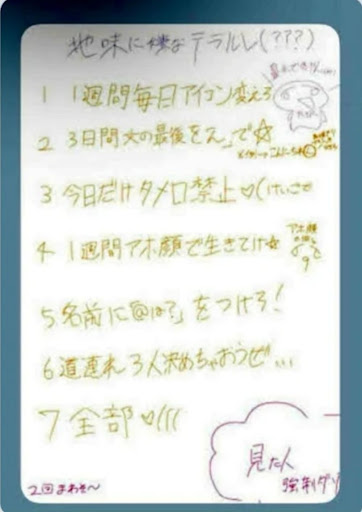 地味に嫌なテラルし(???)
1 1週間毎日アイコン変えろ
2 3日間文の最後をえ」で☆
3 今日だけタメ口禁止♡(けいごで
4 1週間アホ顔で生きてけ☆
アホ顔
5 名前に「@は?」をつけろ!
6 道連れ3人決めちゃおうぜ…
7 全部♡(((
見た人
強制ダゾ
2回まわせ〜